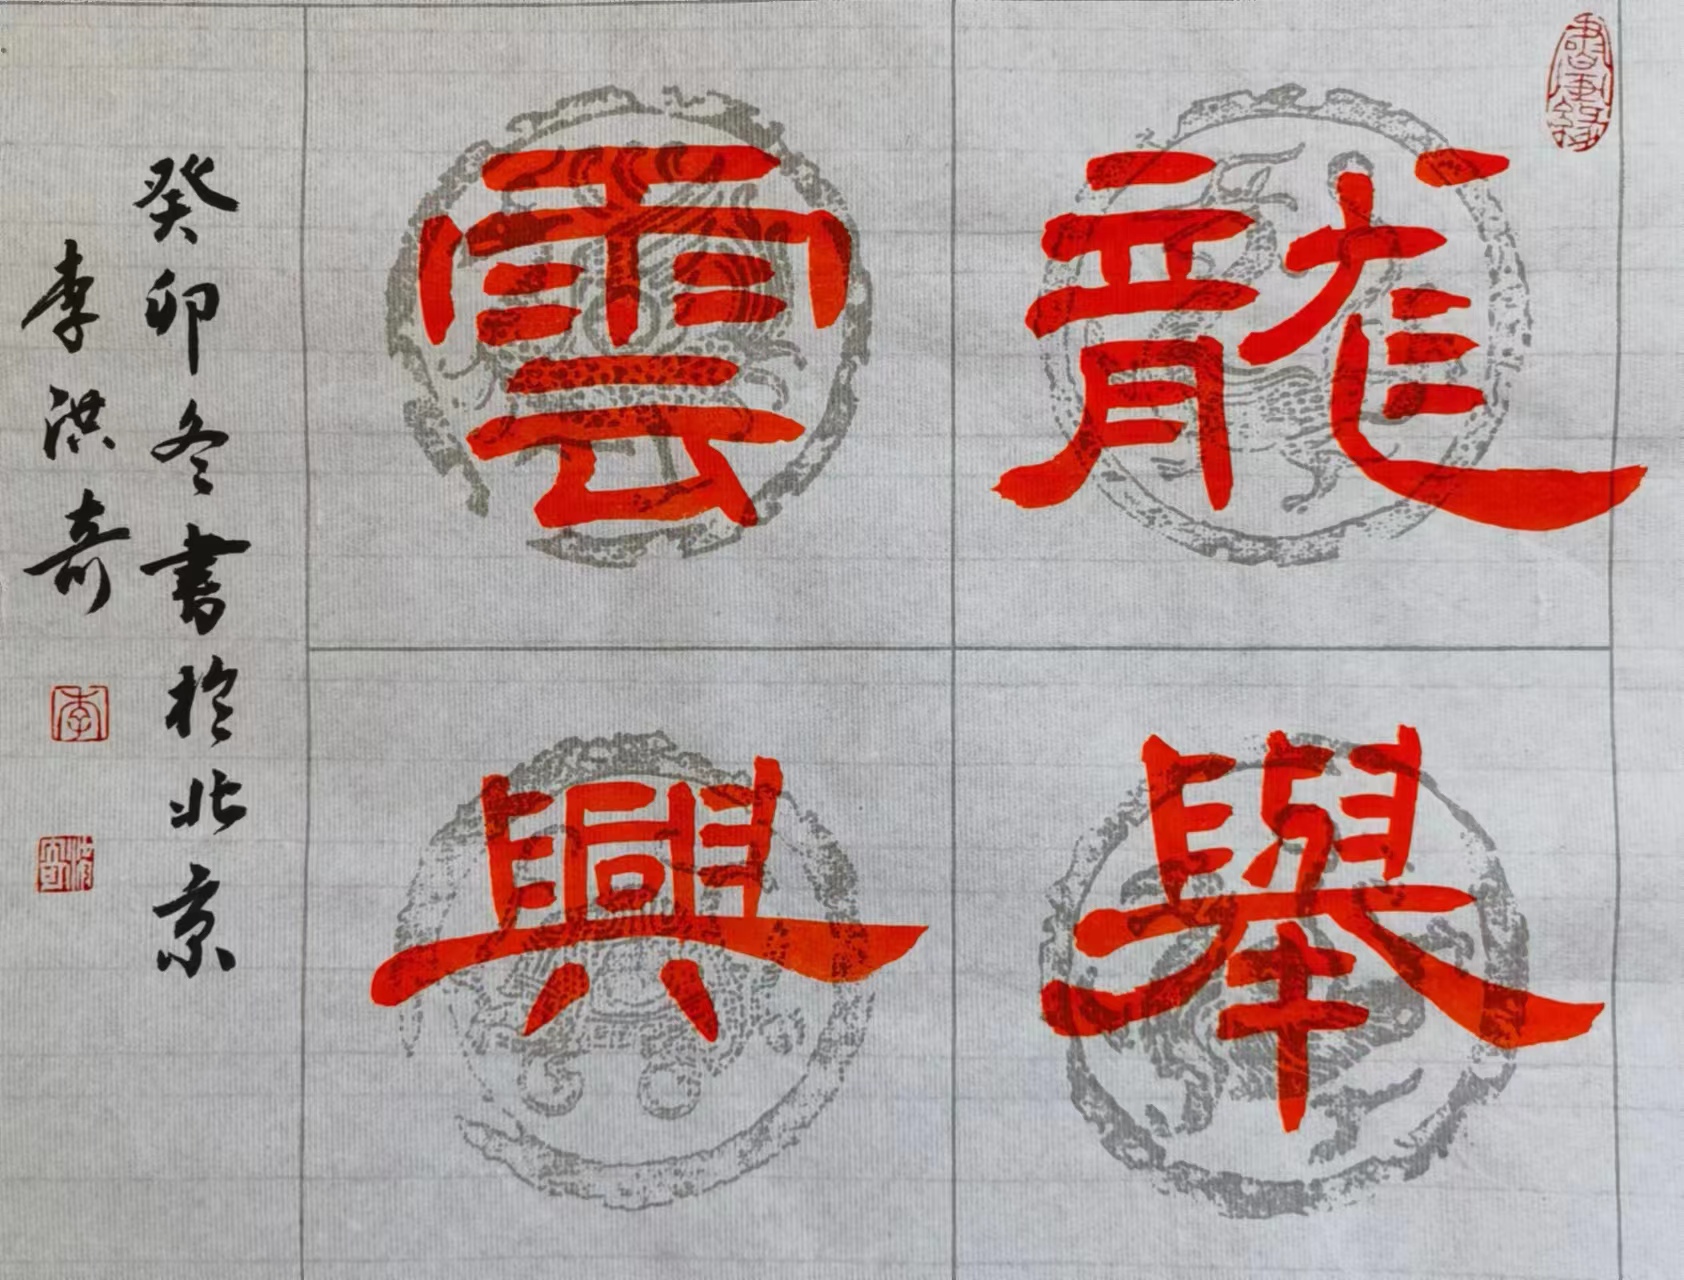 龍舉
雲興
癸卯冬書於北京
李洪奇
李